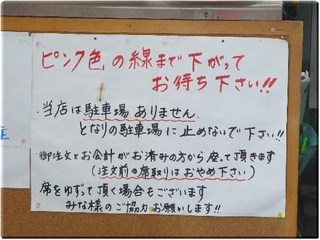 ピンク色の線まで下がって
お待ち下さい!!
当店は駐車場ありません
となりの駐車場に止めないで下さい!!
御注文とお会計がお済みの方から座って頂きます
(注文前の席取りはおやめ下さい)
席をゆずって頂く場合もございます
みな様のご協力お願いします!!